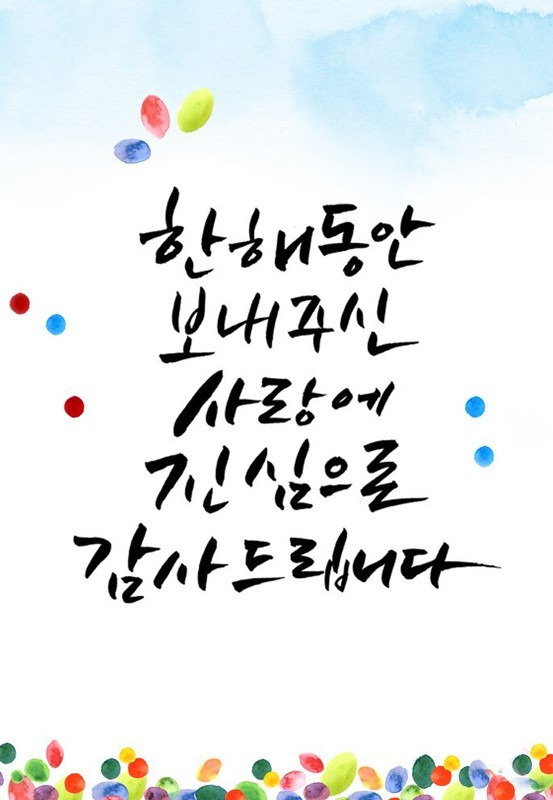 한해동안
보내주신
사랑에
진심으로
감사드립니다